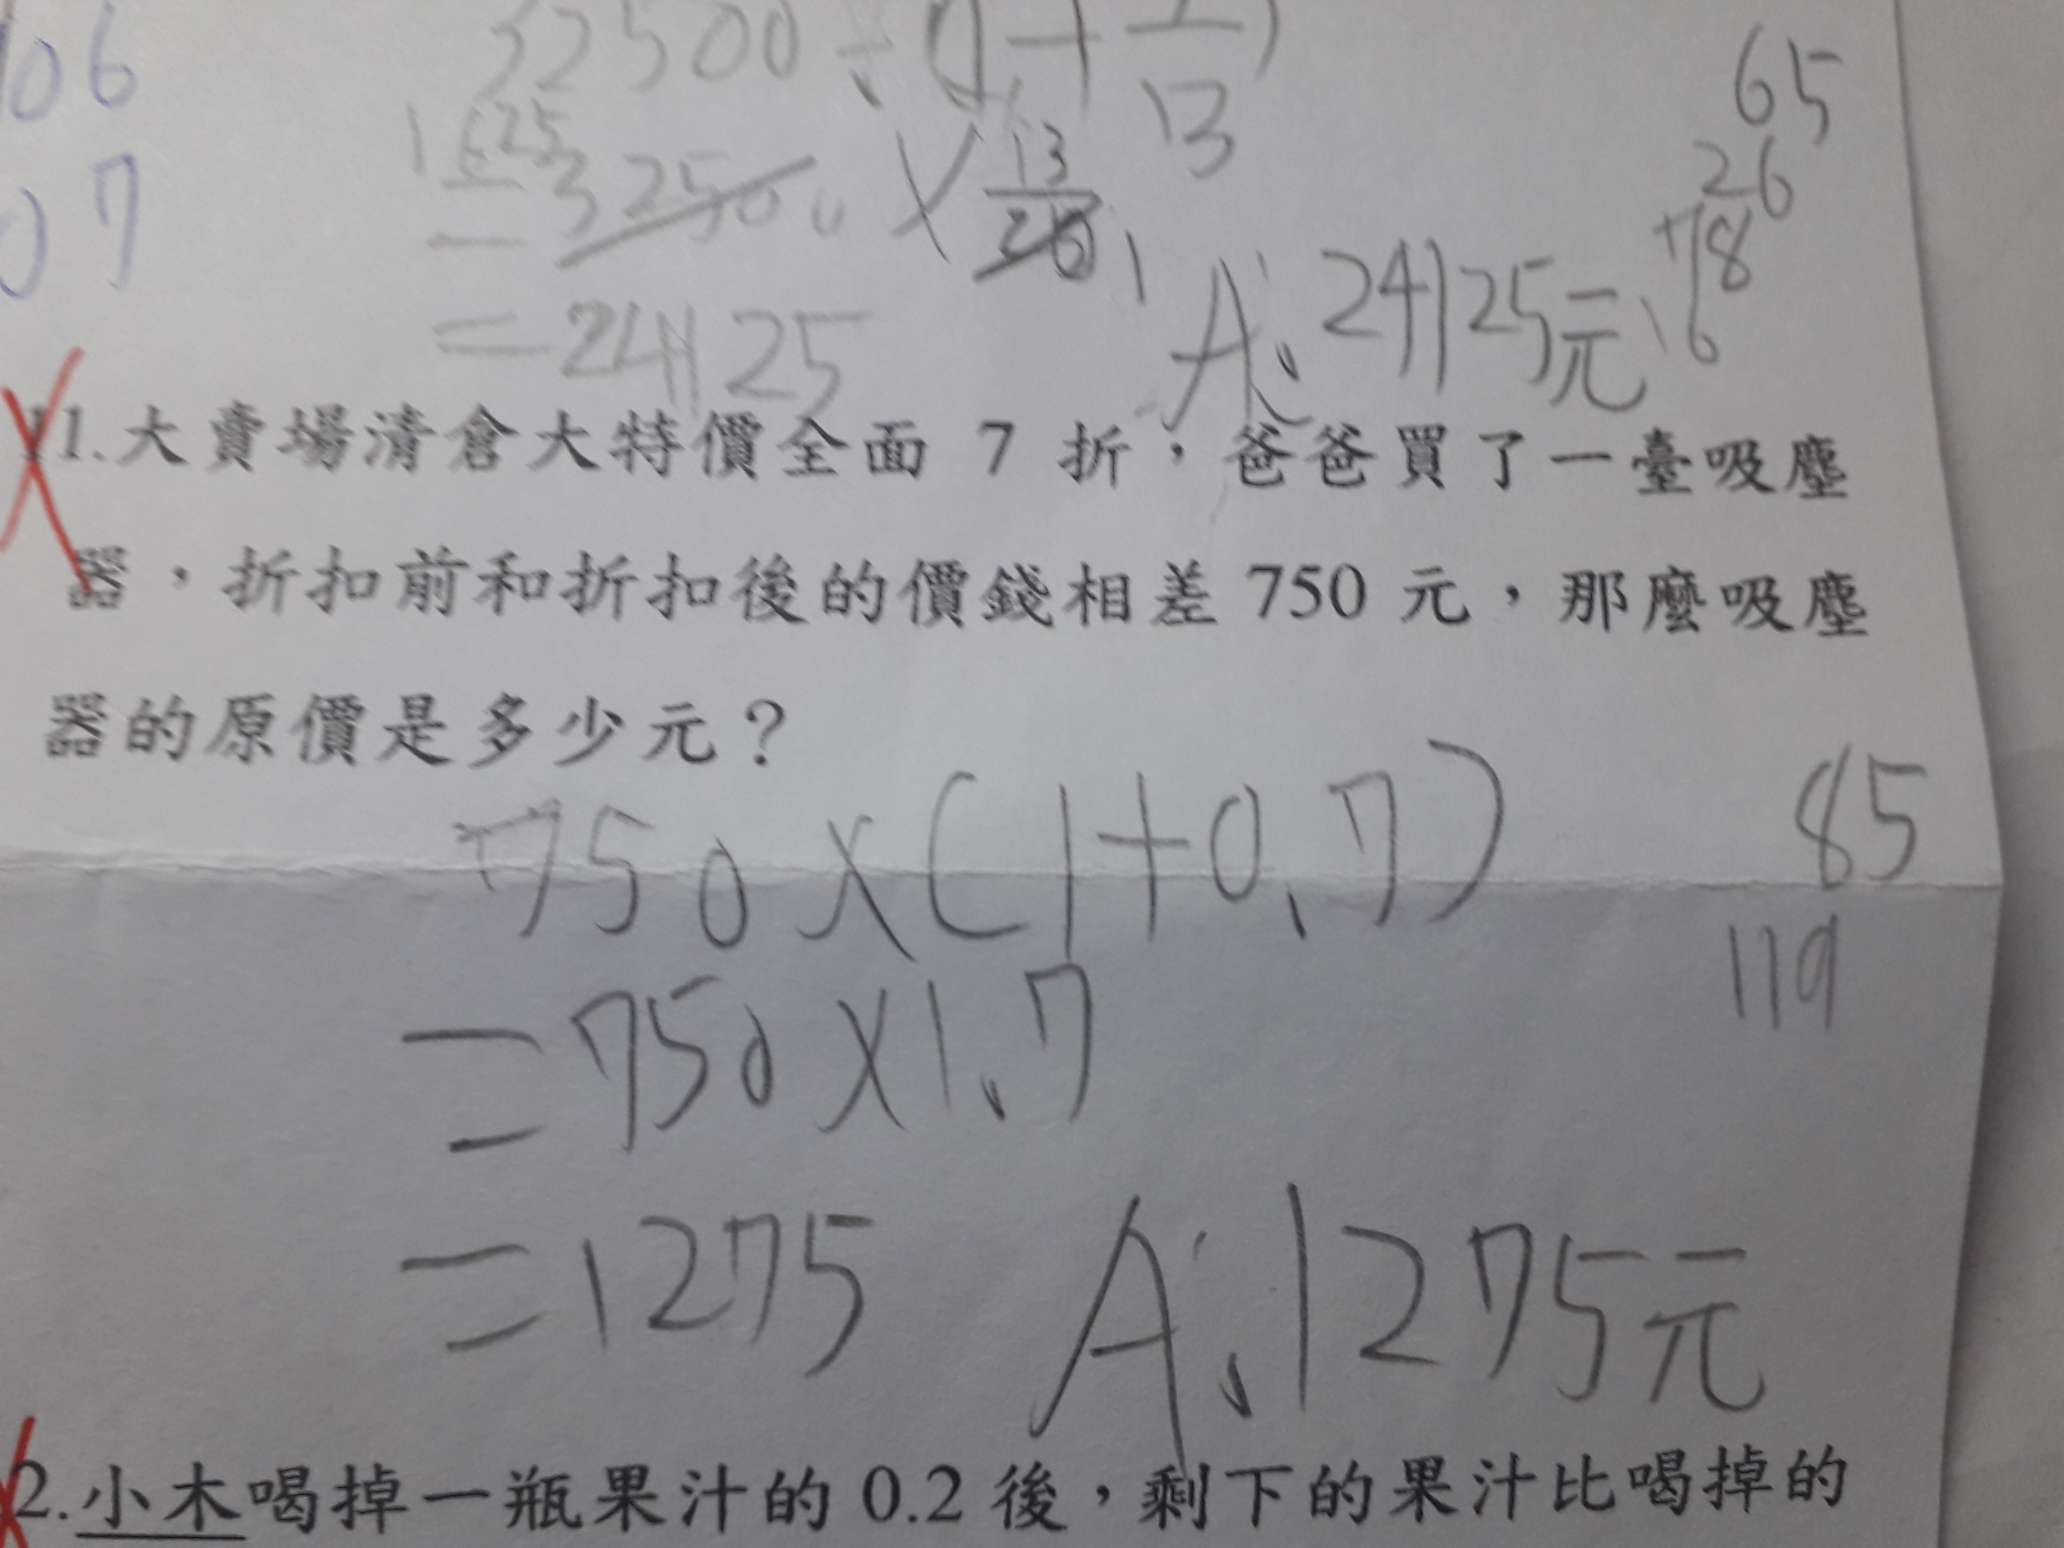 106
07
32500÷(1+1/13)
1625
=32500×13/26 1
=24125
A:24125元
65
26
+78
16
11.大賣場清倉大特價全面 7 折，爸爸買了一臺吸塵
器，折扣前和折扣後的價錢相差 750 元，那麼吸塵
器的原價是多少元？
750×(1+0.7)
=750×1.7
=1275
A:1275元
85
119
2.小木喝掉一瓶果汁的 0.2 後，剩下的果汁比喝掉的